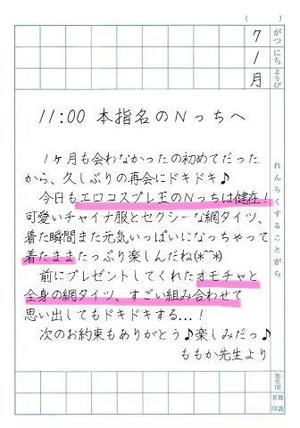 ( )
7 がつ
1 にち
月 ようび
れんらくすることがら
11:00 本指名のNっちへ
1ヶ月も会わなかったの初めてだった
から、久しぶりの再会にドキドキ♪
今日もエロコスプレ王のNっちは健在!
可愛いチャイナ服とセクシーな網タイツ、
着た瞬間また元気いっぱいになっちゃって
着たままたっぷり楽しんだね(*^^*)
前にプレゼントしてくれたオモチャと
全身の網タイツ、すごい組み合わせで
思い出してもドキドキする...!
次のお約束もありがとう♪楽しみだっ♪
ももか先生より